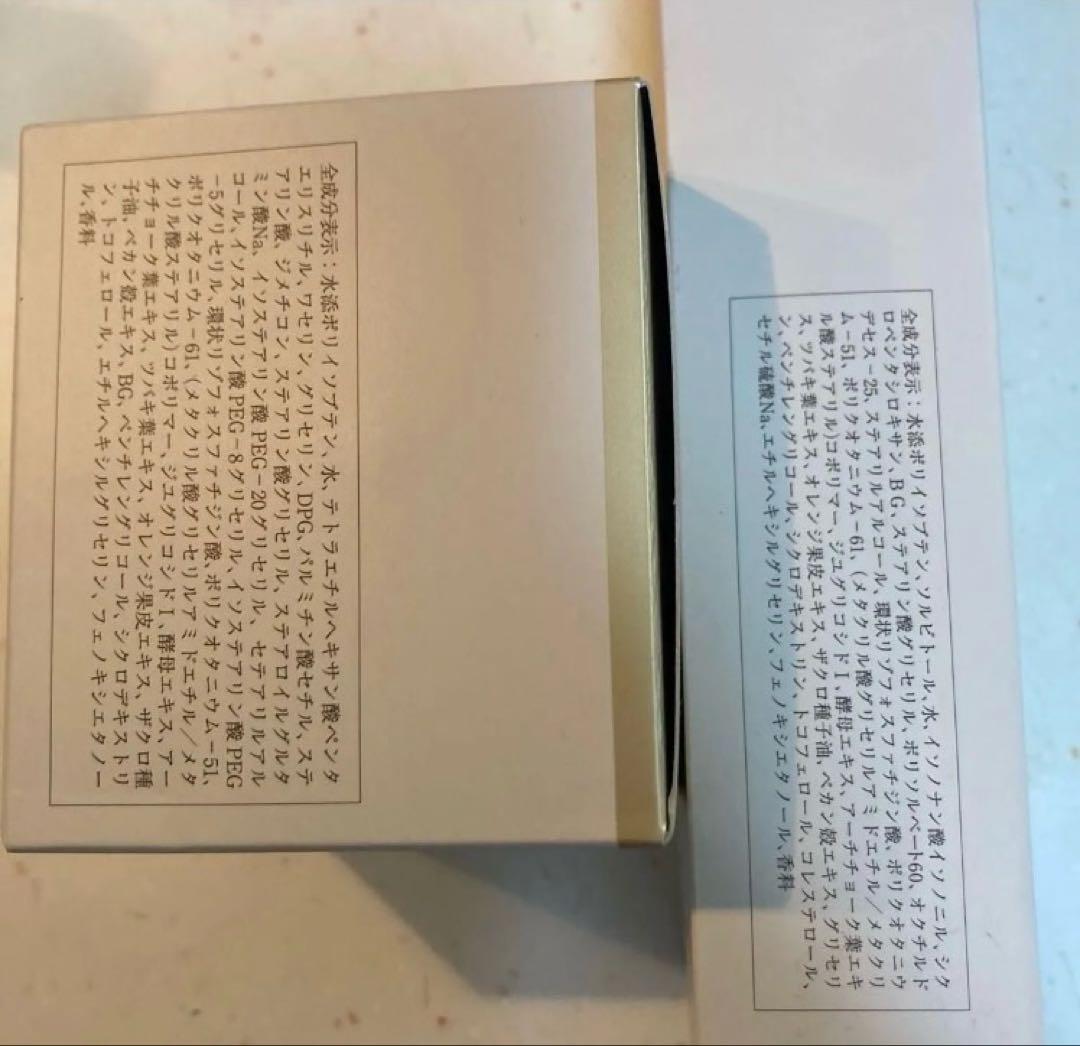 全成分表示：水添ポリイソブテン、水、テトラエチルヘキサン酸ペンタ
エリスリチル、ワセリン、グリセリン、DPG、パルミチン酸セチル、ステ
アリン酸、ジメチコン、ステアリン酸グリセリル、ステアロイルグルタ
ミン酸Na、イソステアリン酸PEG-20グリセリル、セテアリルアル
コール、イソステアリン酸PEG-8グリセリル、イソステアリン酸PEG
-5グリセリル、環状リゾフォスファチジン酸、ポリクオタニウム-51、
ポリクオタニウム-61、(メタクリル酸グリセリルアミドエチル／メタ
クリル酸ステアリル)コポリマー、ジユグリコシドI、酵母エキス、アー
チチョーク葉エキス、ツバキ葉エキス、オレンジ果皮エキス、ザクロ種
子油、ペカン殻エキス、BG、ペンチレングリコール、シクロデキストリ
ン、トコフェロール、エチルヘキシルグリセリン、フェノキシエタノー
ル、香料
全成分表示：水添ポリイソブテン、ソルビトール、水、イソノナン酸イソノニル、シク
ロペンタシロキサン、BG、ステアリン酸グリセリル、ポリソルベート60、オクチルド
デセス-25、ステアリルアルコール、環状リゾフォスファチジン酸、ポリクオタニウ
ム-51、ポリクオタニウム-61、(メタクリル酸グリセリルアミドエチル／メタクリ
ル酸ステアリル)コポリマー、ジユグリコシドI、酵母エキス、アーチチョーク葉エキ
ス、ツバキ葉エキス、オレンジ果皮エキス、ザクロ種子油、ペカン殻エキス、グリセリ
ン、ペンチレングリコール、シクロデキストリン、トコフェロール、コレステロール、
セチル硫酸Na、エチルヘキシルグリセリン、フェノキシエタノール、香料